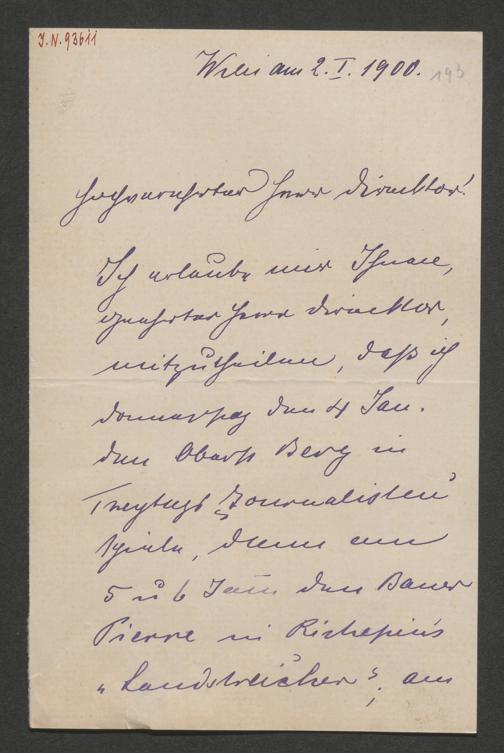 J.N. 93611
Wels am 2. I. 1900.
193
Hochverehrter Herr Direcktor!
Ich erlaube mir Ihnen,
geehrter Herr Direcktor,
mitzutheilen, daß ich
Donnerstag den 4 Jan.
den Oberst Berg in
Freytags „Journalisten"
spiele, dann am
5 u 6 Jan den Bauer
Pierre in Richepin's
„Landstreicher", am